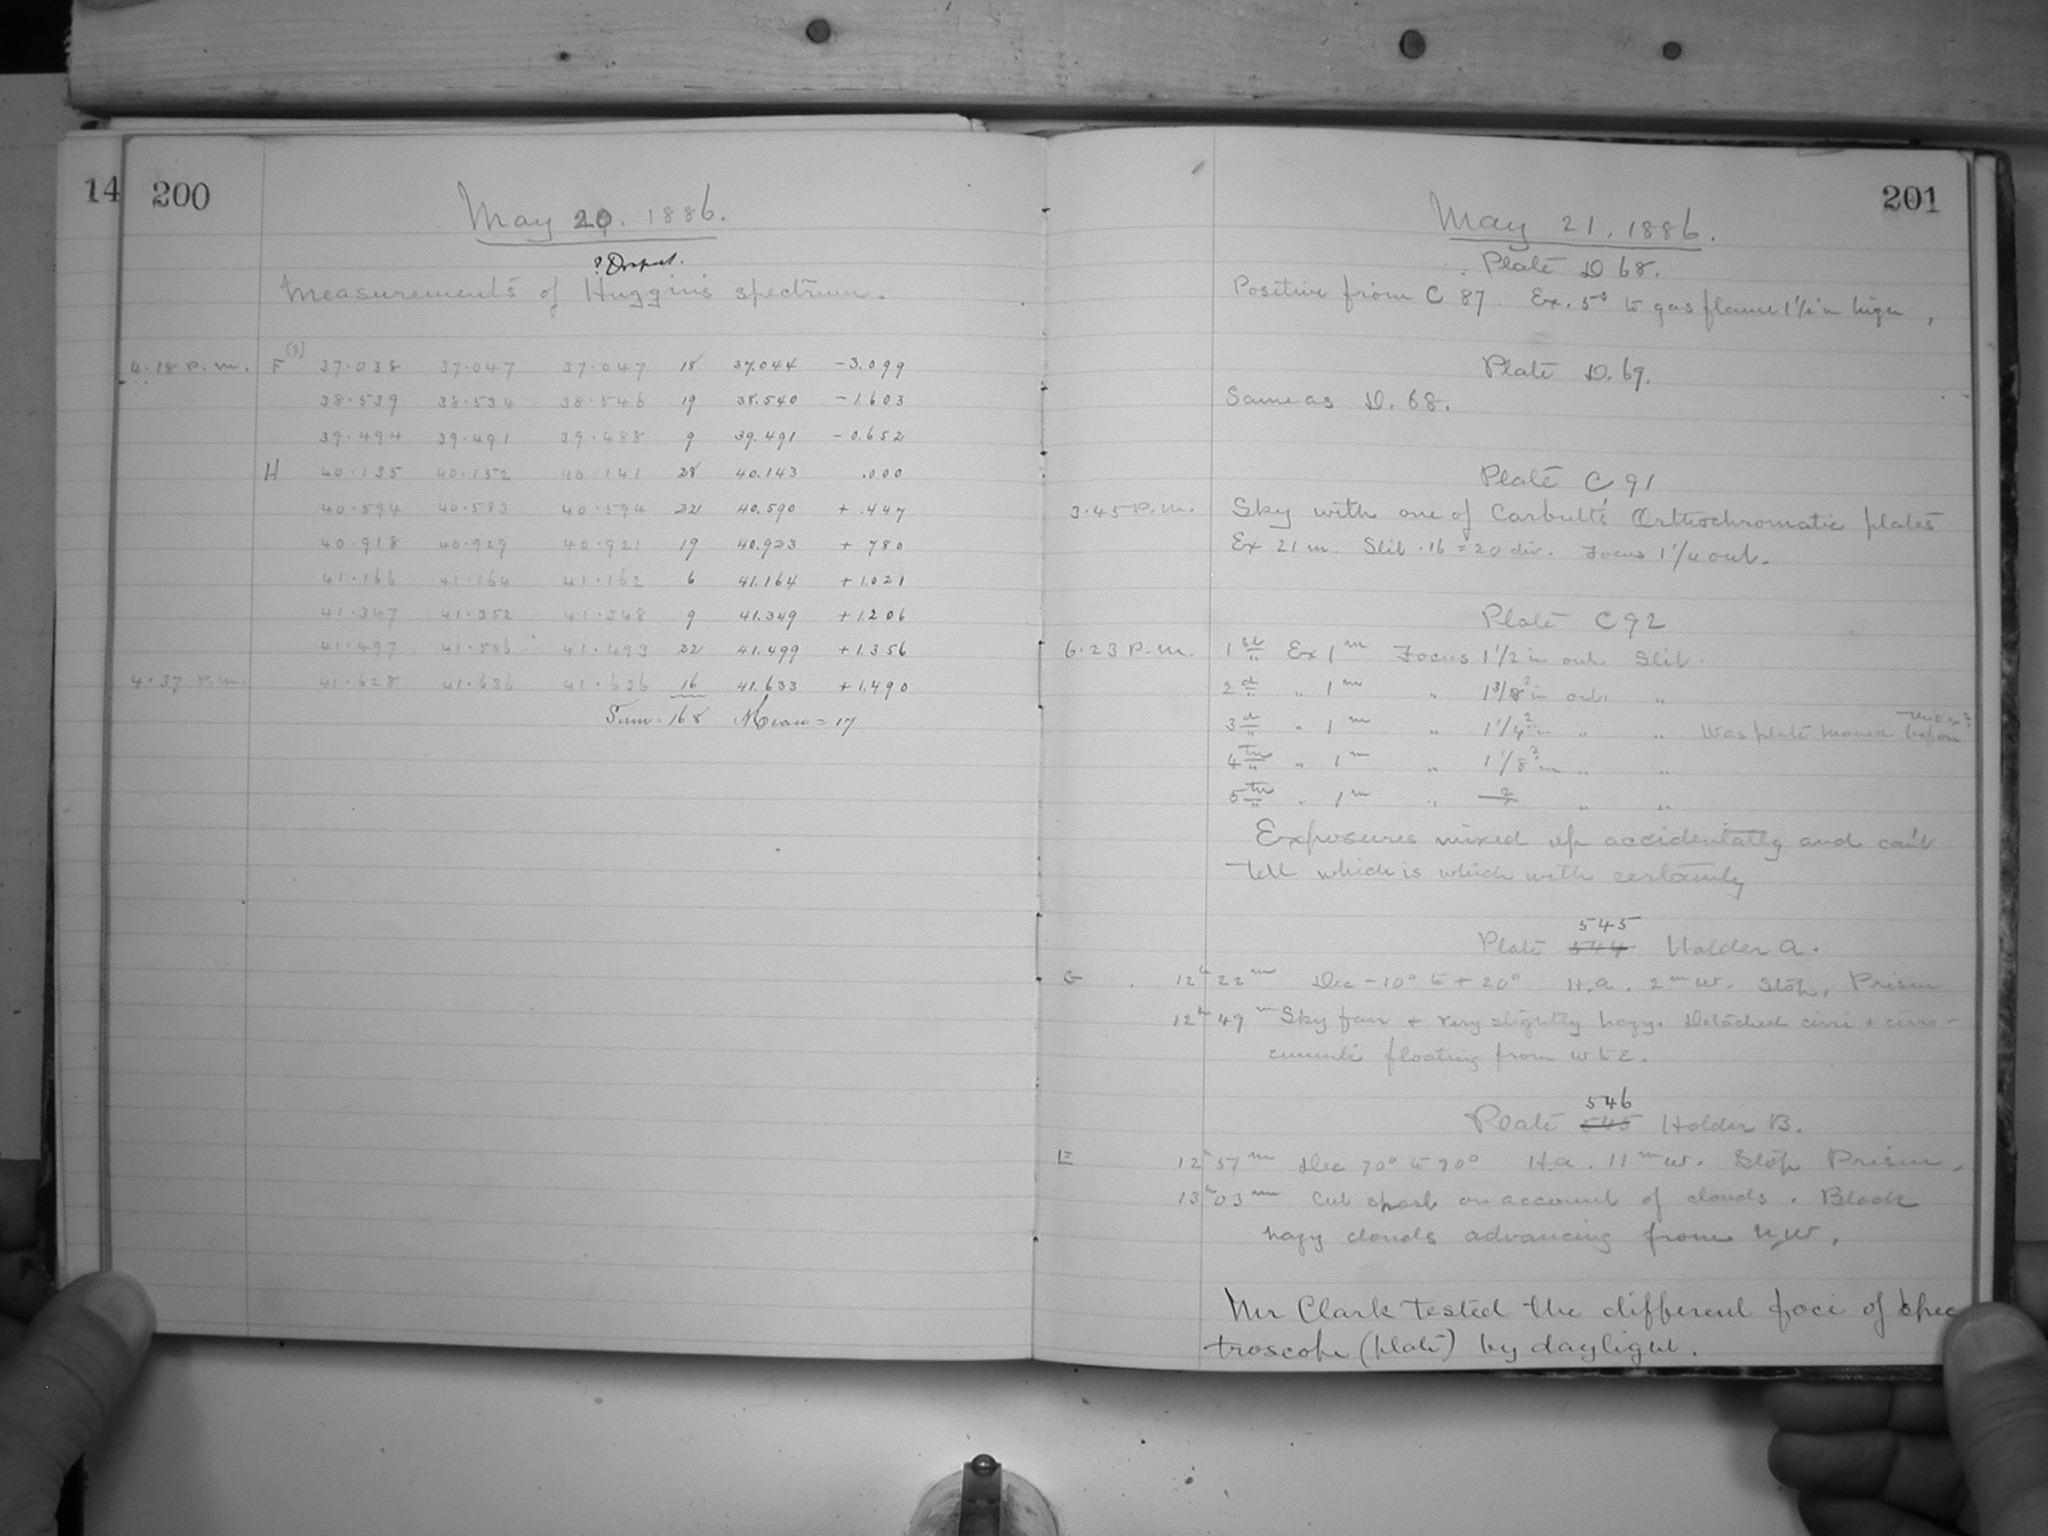 14 200
May 20. 1886.
? Draper.
Measurements of Huggins spectrum.
4.18 P.M. F 37.038 37.047 37.047 18 37.044 -3.099
38.539 38.534 38.546 19 38.540 -1.603
39.494 39.491 39.488 9 39.491 -0.652
H 40.135 40.152 40.141 28 40.143 .000
40.594 40.583 40.594 22 40.590 + .447
40.918 40.929 40.921 19 40.923 + 780
41.166 41.164 41.162 6 41.164 +1.021
41.347 41.352 41.348 9 41.349 +1.206
41.497 41.506 41.493 22 41.499 +1.356
4.37 P.M. 41.628 41.636 41.636 16 41.633 +1.490
Sum. 168 Mean = 17
201
May 21, 1886.
Plate D 68.
Positive from C 87. Ex. 5s to gas flame 1 1/2 in high,
Plate D. 69.
Same as D. 68.
Plate C 91
3.45 P.M. Sky with one of Carbutt's Orthochromatic plates
Ex 21 m. Slit .16 = 20 div. Focus 1 1/4 out.
Plate C 92
6.23 P.M. 1st Ex 1m Focus 1 1/2 in out. Slit.
2d " 1m " 1 3/8? in out. "
3d " 1m " 1 1/4? in " " Was plate moved before this ex?
4th " 1m " 1 1/8? in " "
5th " 1m " ? " "
Exposures mixed up accidentally and can't
tell which is which with certainty
545
Plate 544 Holder A.
G 12h 22m Dec -10° to +20° H.a. 2m W. Stop, Prism
12h 49m Sky fair + very slightly hazy. Detached cirri + cirro-
cumuli floating from W to E.
546
Plate 545 Holder B.
E 12h 57m Dec 70° to 90° H.a. 11m W. Stop Prism,
13h 03m Cut short on account of clouds. Black
hazy clouds advancing from N.W.
Mr Clark tested the different foci of spec
troscope (plate) by daylight.